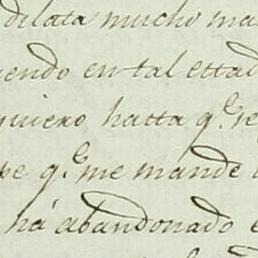 dilata mucho ma
endo en tal estad
quiero hasta q.e re
pe q.e me mande
há abandonado e